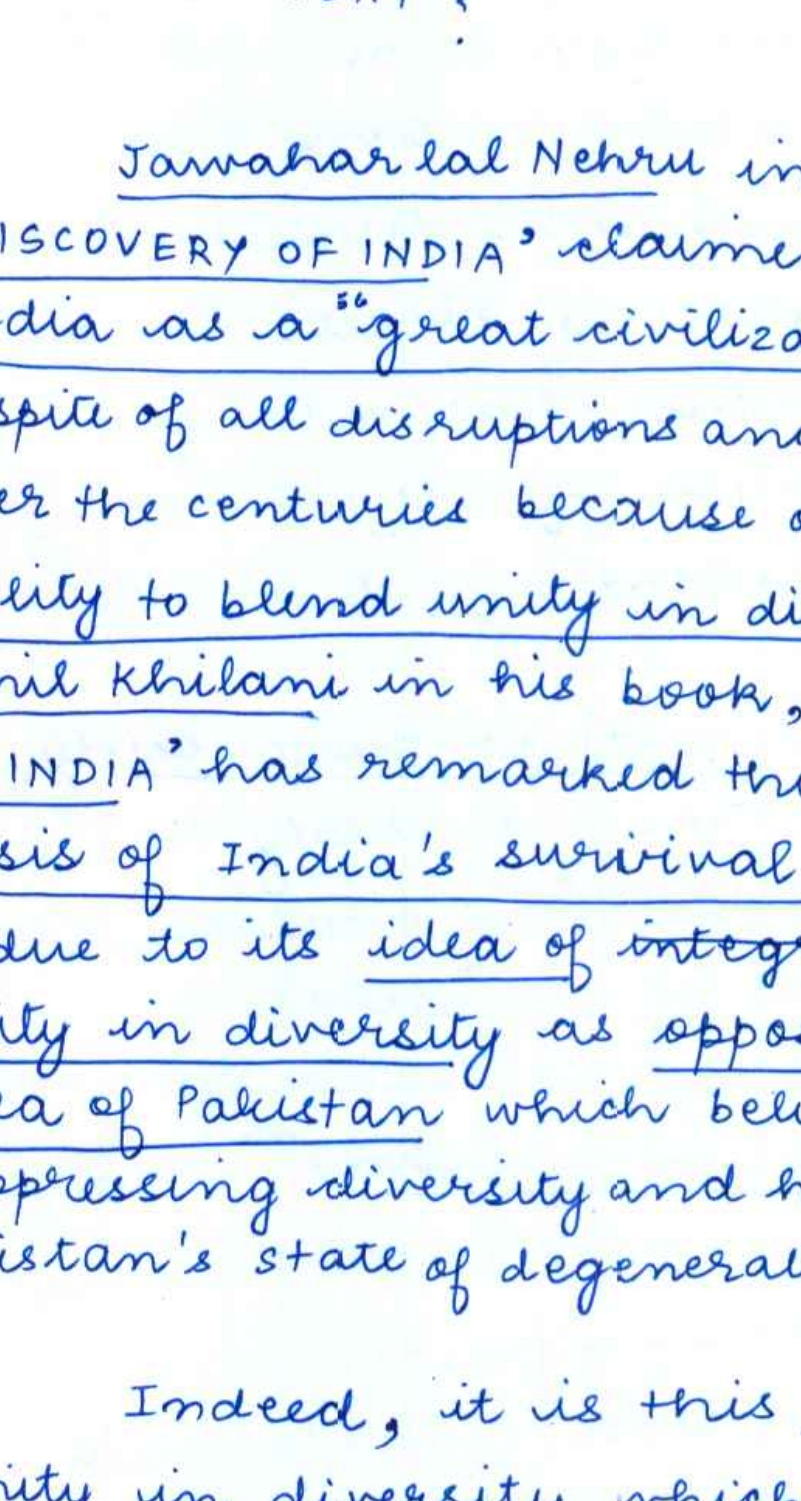 Jawaharlal Nehru in
ISCOVERY OF INDIA' claime
dia as a "great civiliza
spite of all disruptions and
er the centuries because o
lity to blend unity in di
nil Khilani in his book,
INDIA' has remarked the
sis of India's survival
due to its idea of integr
ity in diversity as oppo
ea of Pakistan which beli
ppressing diversity and h
istan's state of degenerat
Indeed, it is this
nity in diversity which